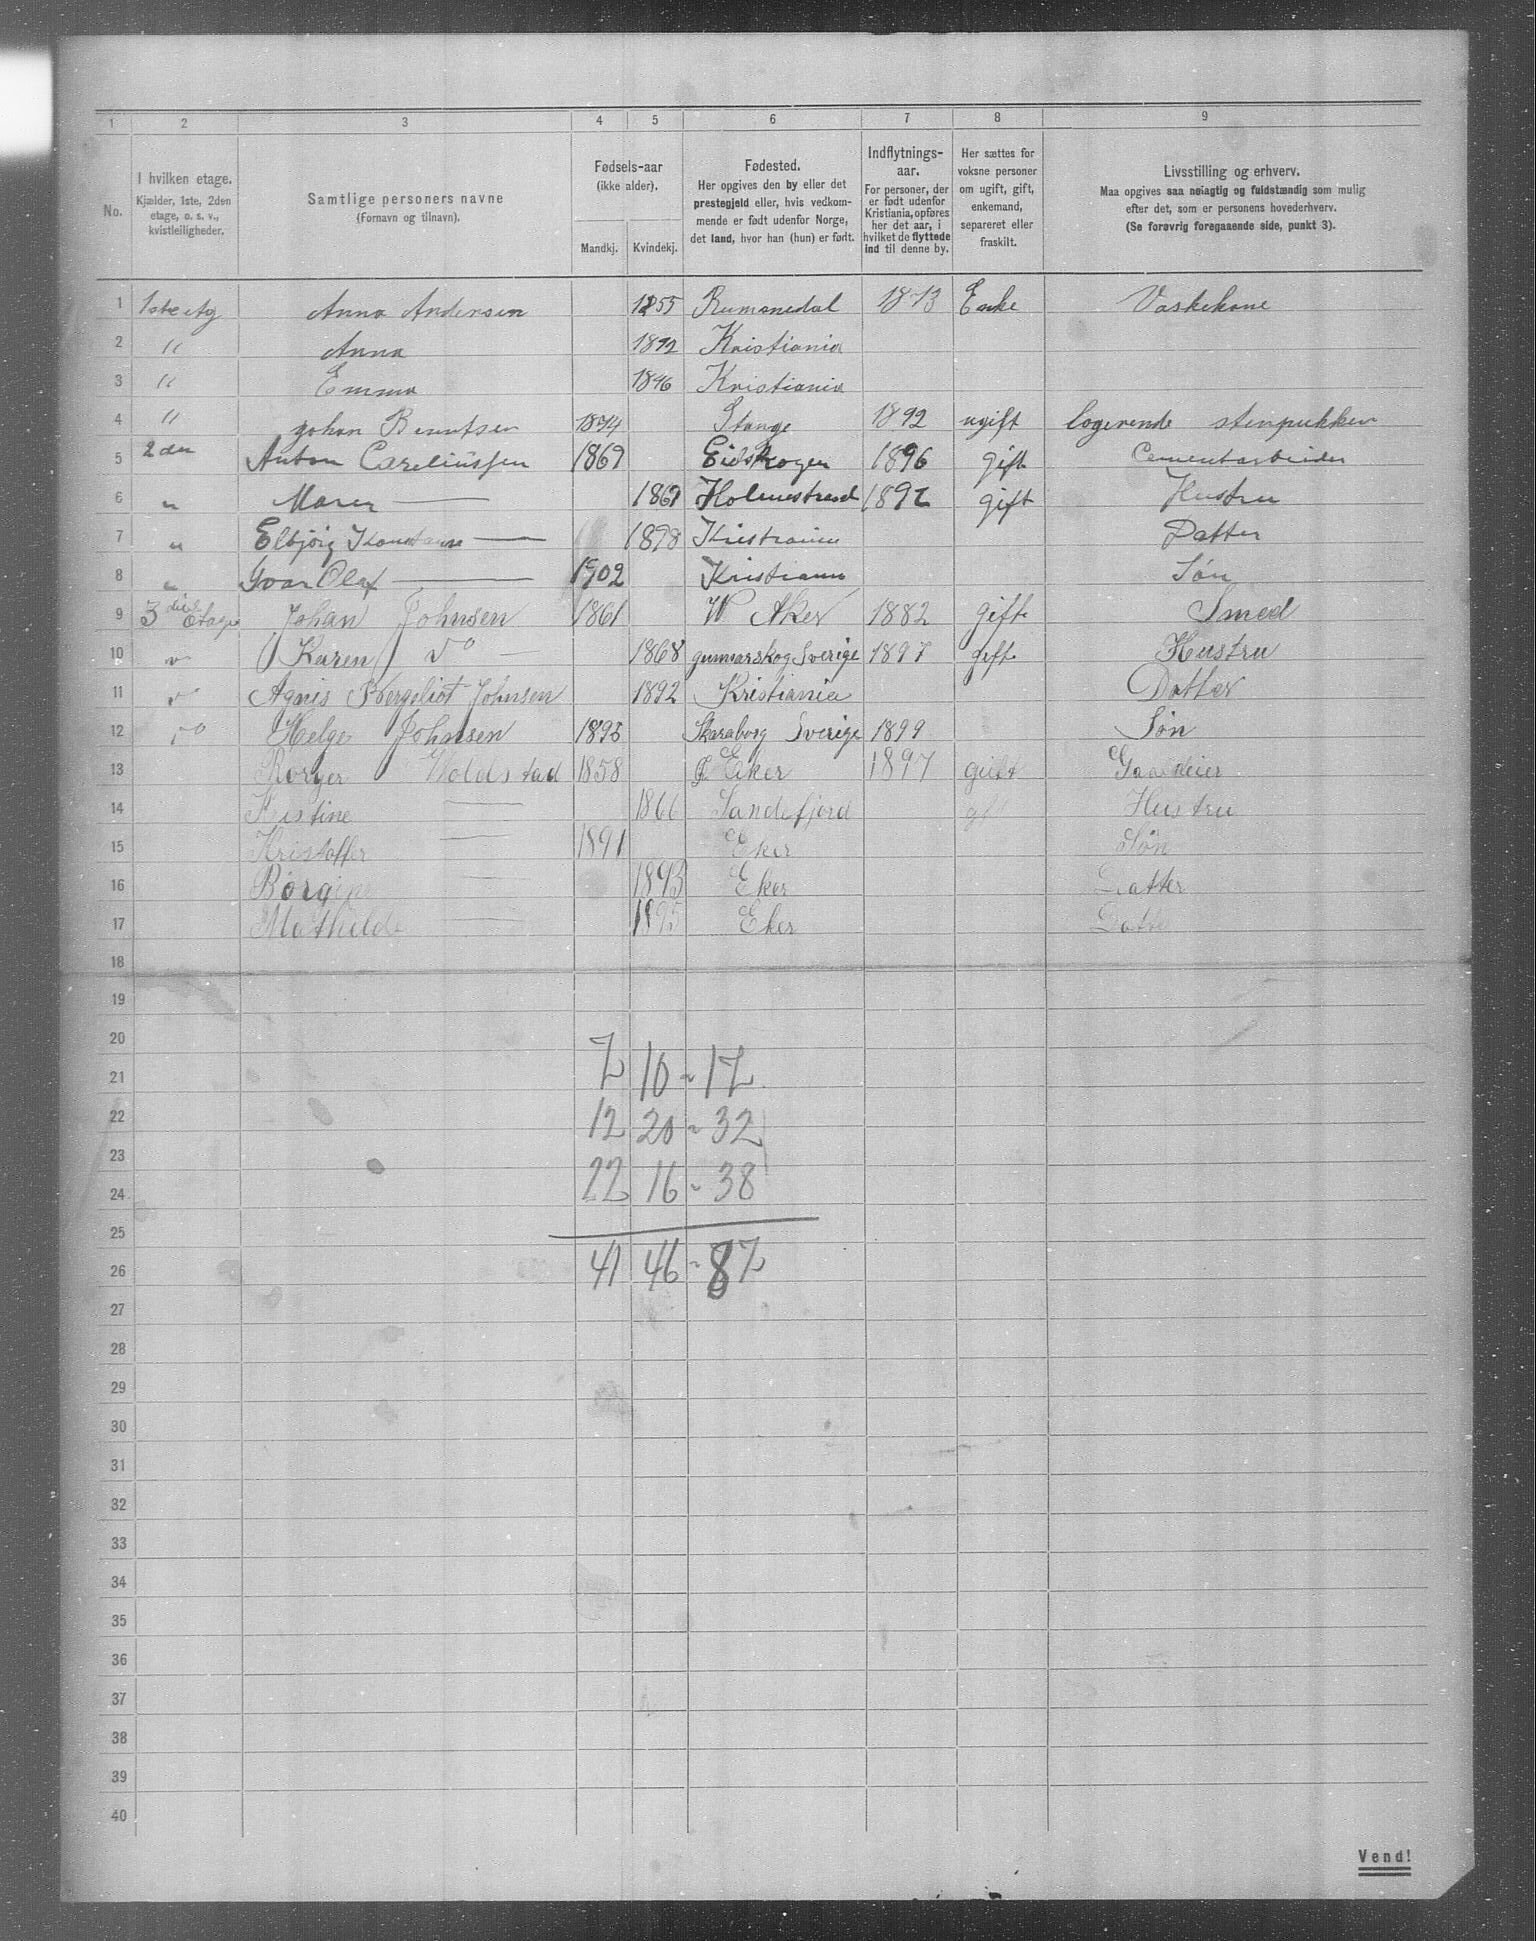 1 2 3 4 5 6 7 8 9
No.
I hvilken etage.
Kjælder, 1ste, 2den
etage, o. s. v.,
kvistleiligheder.
Samtlige personers navne
(Fornavn og tilnavn).
Fødsels-aar
(ikke alder).
Mandkj. Kvindekj.
Fødested.
Her opgives den by eller det
prestegjeld eller, hvis vedkom-
mende er født udenfor Norge,
det land, hvor han (hun) er født.
Indflytnings-
aar.
For personer, der
er født udenfor
Kristiania, opføres
her det aar, i
hvilket de flyttede
ind til denne by.
Her sættes for
voksne personer
om ugift, gift,
enkemand,
separeret eller
fraskilt.
Livsstilling og erhverv.
Maa opgives saa nøiagtig og fuldstændig som mulig
efter det, som er personens hovederhverv.
(Se forøvrig foregaaende side, punkt 3).
1 1ste Etg Anna Andersen 1855 Rumsnedal 1873 Enke Vaskekone
2 " Anna 1892 Kristiania
3 " Emma 1896 Kristiania
4 " Johan Berntsen 1874 Stange 1892 ugift logerende stenpukker
5 2den Anton Careliussen 1869 Eidskogen 1896 gift Cementarbeider
6 " Maren — 1869 Holmestrand 1892 gift Hustru
7 " Elbjørg — 1898 Kristiania Datter
8 " Ivar Olaf — 1902 Kristiania Søn
9 3die Etage Johan Johnsen 1861 V Aker 1882 gift Smed
10 " Karen do — 1868 gunnarskog Sverige 1897 gift Hustru
11 " Agnis Bergeliot Johnsen 1892 Kristiania Datter
12 do Helge Johnsen 1895 Skaraborg Sverige 1899 Søn
13 Borger Holdstad 1858 Ø Eker 1897 gift Gaardeier
14 Kristine — 1866 Sandefjord gift Hustru
15 Kristoffer — 1891 Eker Søn
16 — 1893 Eker Datter
17 Mathilde — 1895 Eker Datter
18
19
20
21 7 10 - 17
22 12 20 - 32
23
24 22 16 - 38
25
26 41 46 - 87
27
28
29
30
31
32
33
34
35
36
37
38
39
40
Vend!